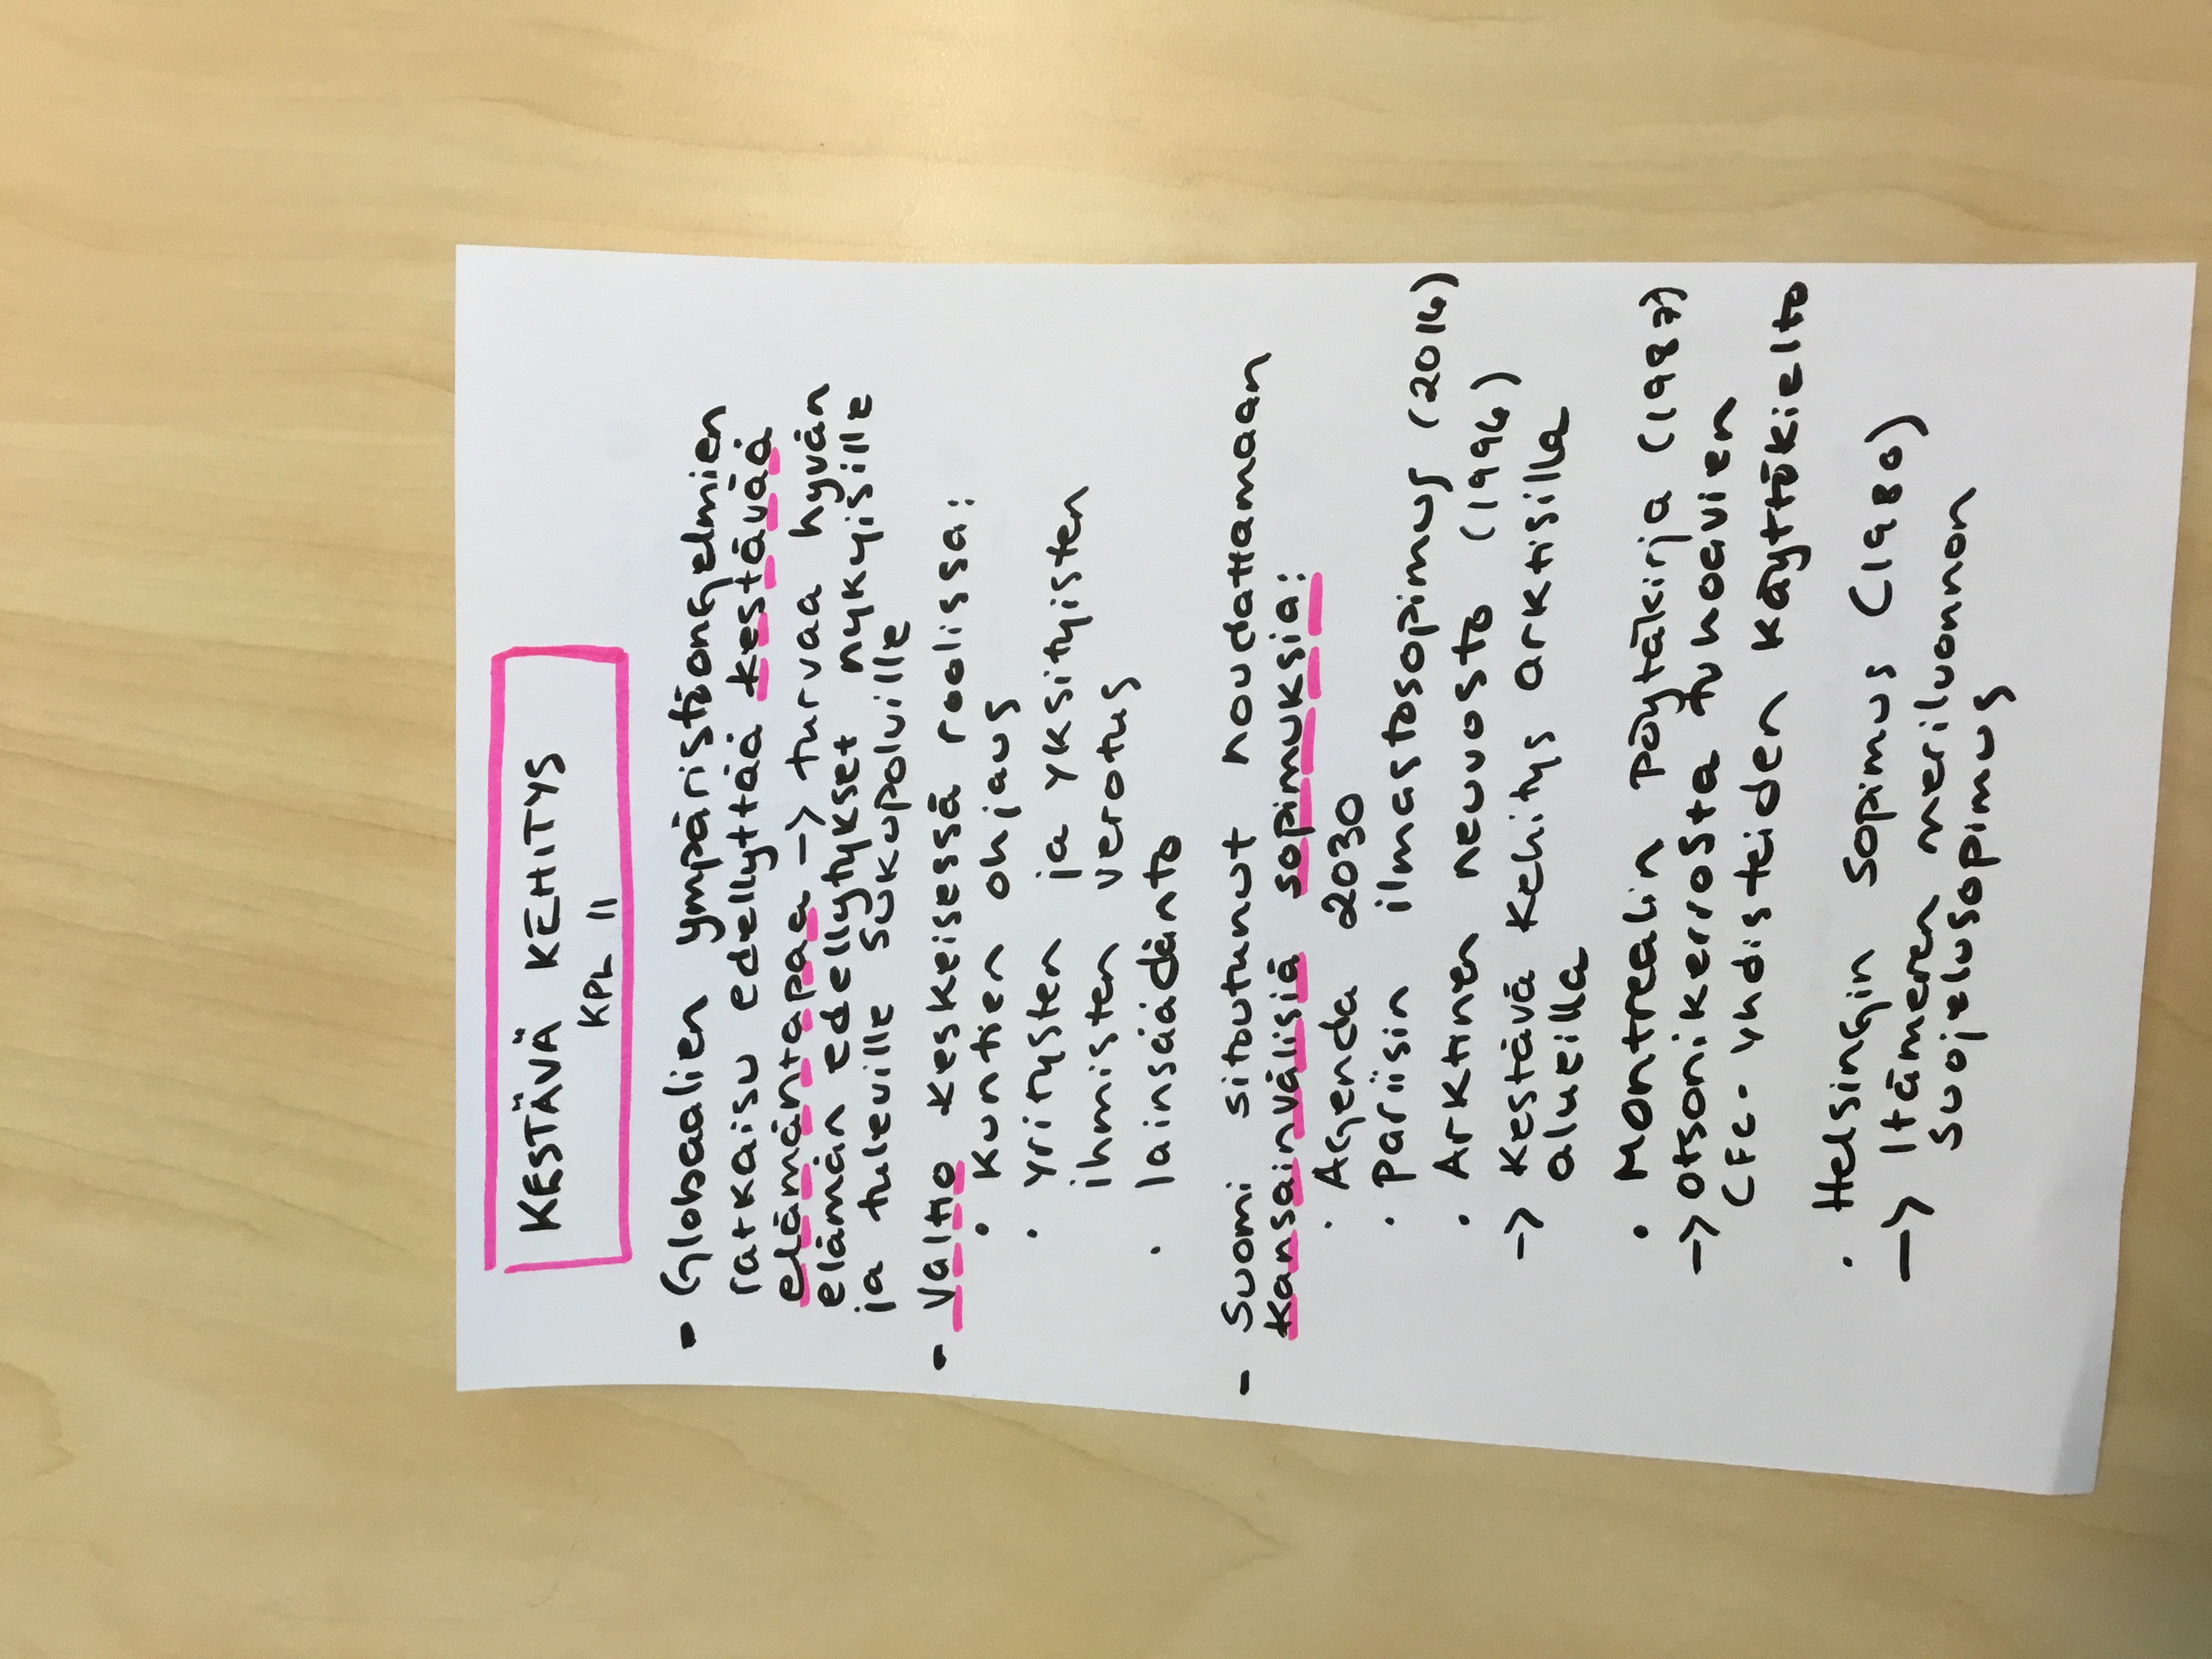 KESTÄVÄ KEHITYS
KPL 11
- Globaalien ympäristöongelmien
ratkaisu edellyttää kestävää
elämäntapaa -> turvaa hyvän
elämän edellytykset nykyisille
ja tuleville sukupolville
- Valtio keskeisessä roolissa:
• Kuntien ohjaus
• Yritysten ja yksityisten
ihmisten verotus
• lainsäädänto
- Suomi sitoutunut noudattamaan
kansainvälisiä sopimuksia:
• Agenda 2030
• Pariisin ilmastosopimus (2016)
• Arktinen neuvosto (1996)
-> Kestävä kehitys arktisilla
alueilla
• Montrealin pöytäkirja (1987)
-> otsonikerrosta tuhoavien
CFC-yhdisteiden käyttökielto
• Helsingin sopimus (1980)
-> Itämeren meriluonnon
suojelusopimus